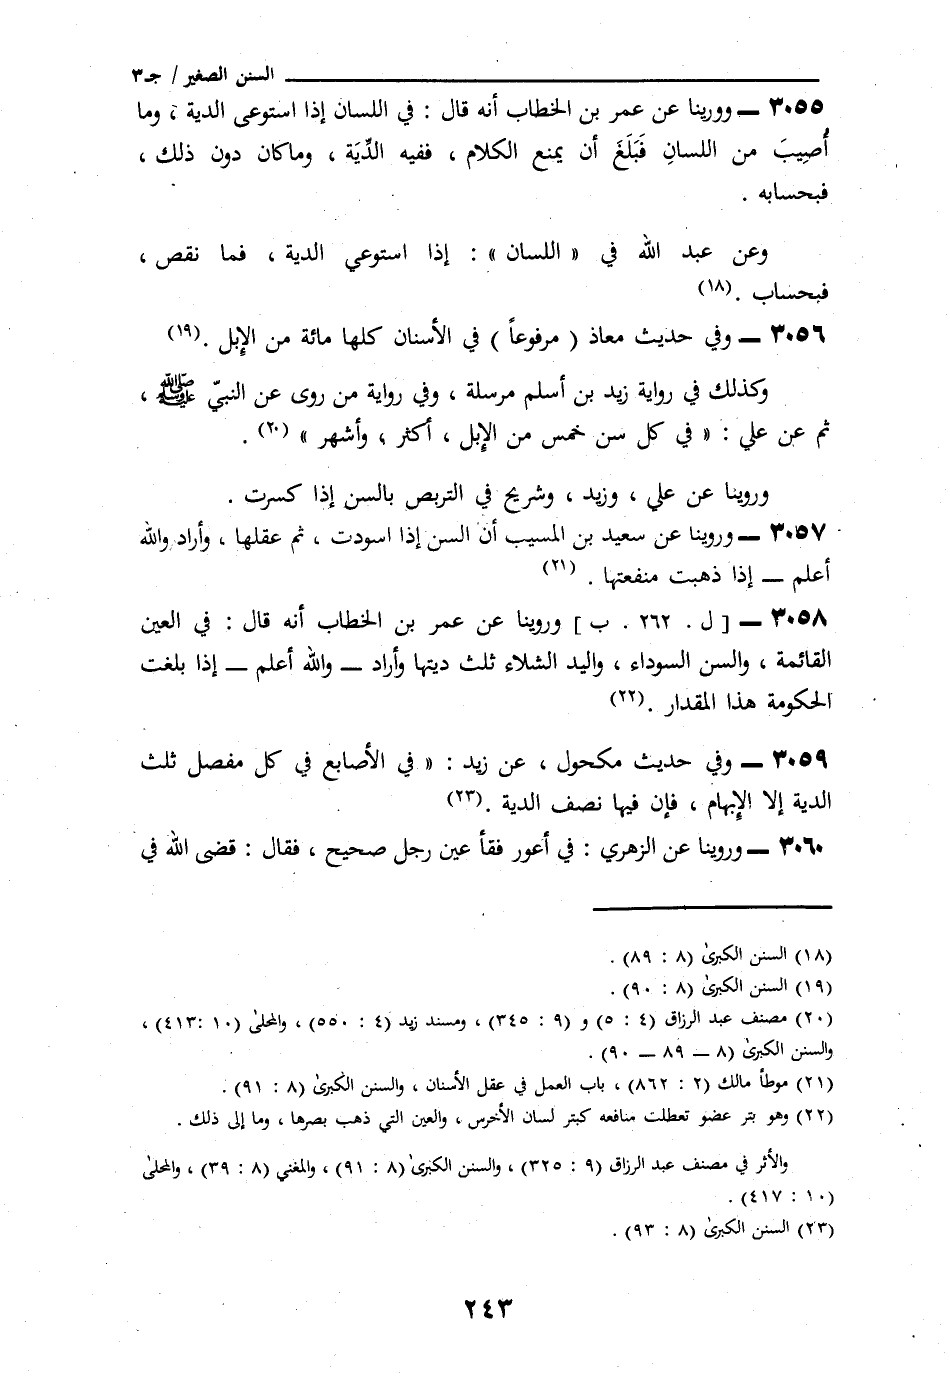 السنن الصغير / جـ٣
٣٠٥٥ ــ وروينا عن عمر بن الخطاب أنه قال : في اللسان إذا استوعى الدية ، وما
أُصِيبَ من اللسانِ فَبَلَغَ أن يمنع الكلام ، ففيه الدِّيَة ، وماكان دون ذلك ،
فبحسابه .
وعن عبد الله في « اللسان » : إذا استوعي الدية ، فما نقص ،
فبحساب .(١٨)
٣٠٥٦ ــ وفي حديث معاذ ( مرفوعاً ) في الأسنان كلها مائة من الإبل .(١٩)
وكذلك في رواية زيد بن أسلم مرسلة ، وفي رواية من روى عن النبيّ ﷺ ،
ثم عن علي : « في كل سن خمس من الإبل ، أكثر ، وأشهر » (٢٠) .
وروينا عن علي ، وزيد ، وشريح في التربص بالسن إذا كسرت .
٣٠٥٧ ــ وروينا عن سعيد بن المسيب أن السن إذا اسودت ، ثم عقلها ، وأراد والله
أعلم ــ إذا ذهبت منفعتها . (٢١)
٣٠٥٨ ــ [ ل . ٢٦٢ . ب ] وروينا عن عمر بن الخطاب أنه قال : في العين
القائمة ، والسن السوداء ، واليد الشلاء ثلث ديتها وأراد ــ والله أعلم ــ إذا بلغت
الحكومة هذا المقدار .(٢٢)
٣٠٥٩ ــ وفي حديث مكحول ، عن زيد : « في الأصابع في كل مفصل ثلث
الدية إلا الإبهام ، فإن فيها نصف الدية .(٢٣)
٣٠٦٠ ــ وروينا عن الزهري : في أعور فقأ عين رجل صحيح ، فقال : قضى الله في
(١٨) السنن الكبرىٰ (٨ : ٨٩) .
(١٩) السنن الكبرىٰ (٨ : ٩٠) .
(٢٠) مصنف عبد الرزاق (٤ : ٥) و (٩ : ٣٤٥) ، ومسند زيد (٤ : ٥٥٠) ، والمحلىٰ (١٠ :٤١٣) ،
والسنن الكبرىٰ (٨ ــ ٨٩ ــ ٩٠) .
(٢١) موطأ مالك (٢ : ٨٦٢) ، باب العمل في عقل الأسنان ، والسنن الكبرىٰ (٨ : ٩١) .
(٢٢) وهو بتر عضو تعطلت منافعه كبتر لسان الأخرس ، والعين التي ذهب بصرها ، وما إلى ذلك .
والأثر في مصنف عبد الرزاق (٩ : ٣٢٥) ، والسنن الكبرىٰ (٨ : ٩١) ، والمغني (٨ : ٣٩) ، والمحلىٰ
(١٠ : ٤١٧) .
(٢٣) السنن الكبرىٰ (٨ : ٩٣) .
٢٤٣